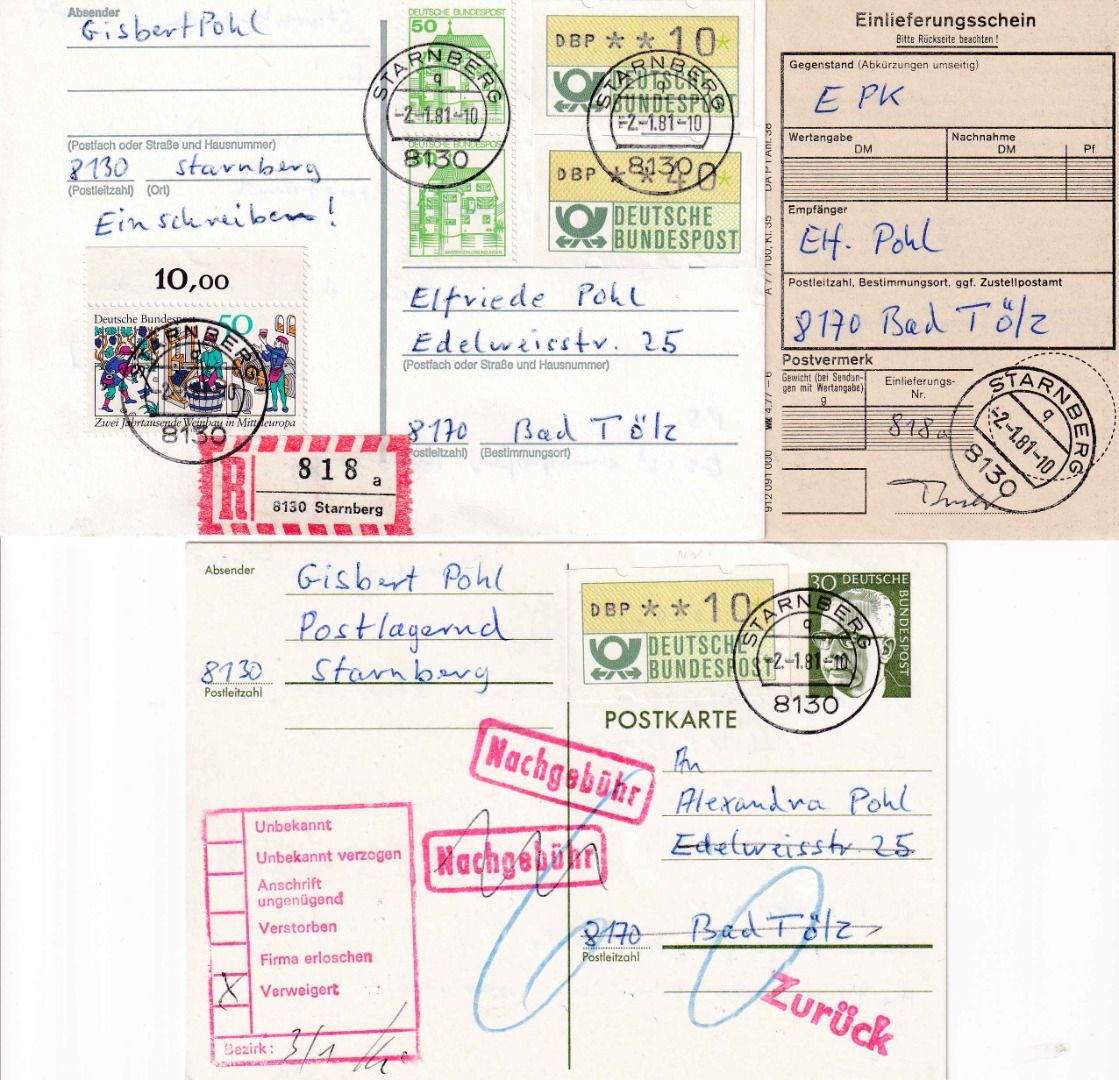 Absender
Gisbert Pohl
(Postfach oder Straße und Hausnummer)
8130 Starnberg
(Postleitzahl) (Ort)
Einschreiben!
10,00
Deutsche Bundespost 50
Zwei Jahrtausende Weinbau in Mitteleuropa
STARNBERG
8130
R 818 a
8130 Starnberg
DEUTSCHE BUNDESPOST
50
DEUTSCHE BUNDESPOST
50
STARNBERG
q
-2.-1.81-10
8130
DBP ** 10*
DEUTSCHE
BUNDESPOST
STARNBERG
q
-2.-1.81-10
8130
DBP ** 40*
DEUTSCHE
BUNDESPOST
Elfriede Pohl
Edelweisstr. 25
(Postfach oder Straße und Hausnummer)
8170 Bad Tölz
(Postleitzahl) (Bestimmungsort)
Einlieferungsschein
Bitte Rückseite beachten!
Gegenstand (Abkürzungen umseitig)
E PK
Wertangabe Nachnahme
DM DM Pf
Empfänger
Elf. Pohl
Postleitzahl, Bestimmungsort, ggf. Zustellpostamt
8170 Bad Tölz
Postvermerk
Gewicht (bei Sendun-
gen mit Wertangabe)
g
Einlieferungs-
Nr.
818 a
STARNBERG
q
-2.-1.81-10
8130
912 091 000
Absender
Gisbert Pohl
Postlagernd
8130 Starnberg
Postleitzahl
DBP ** 10
DEUTSCHE
BUNDESPOST
STARNBERG
q
-2.-1.81-10
8130
30 DEUTSCHE
BUNDESPOST
POSTKARTE
Nachgebühr
Nachgebühr
An
Alexandra Pohl
Edelweisstr. 25
8170 Bad Tölz
Postleitzahl
60
Zurück
Unbekannt
Unbekannt verzogen
Anschrift
ungenügend
Verstorben
Firma erloschen
X Verweigert
Bezirk: 3/1